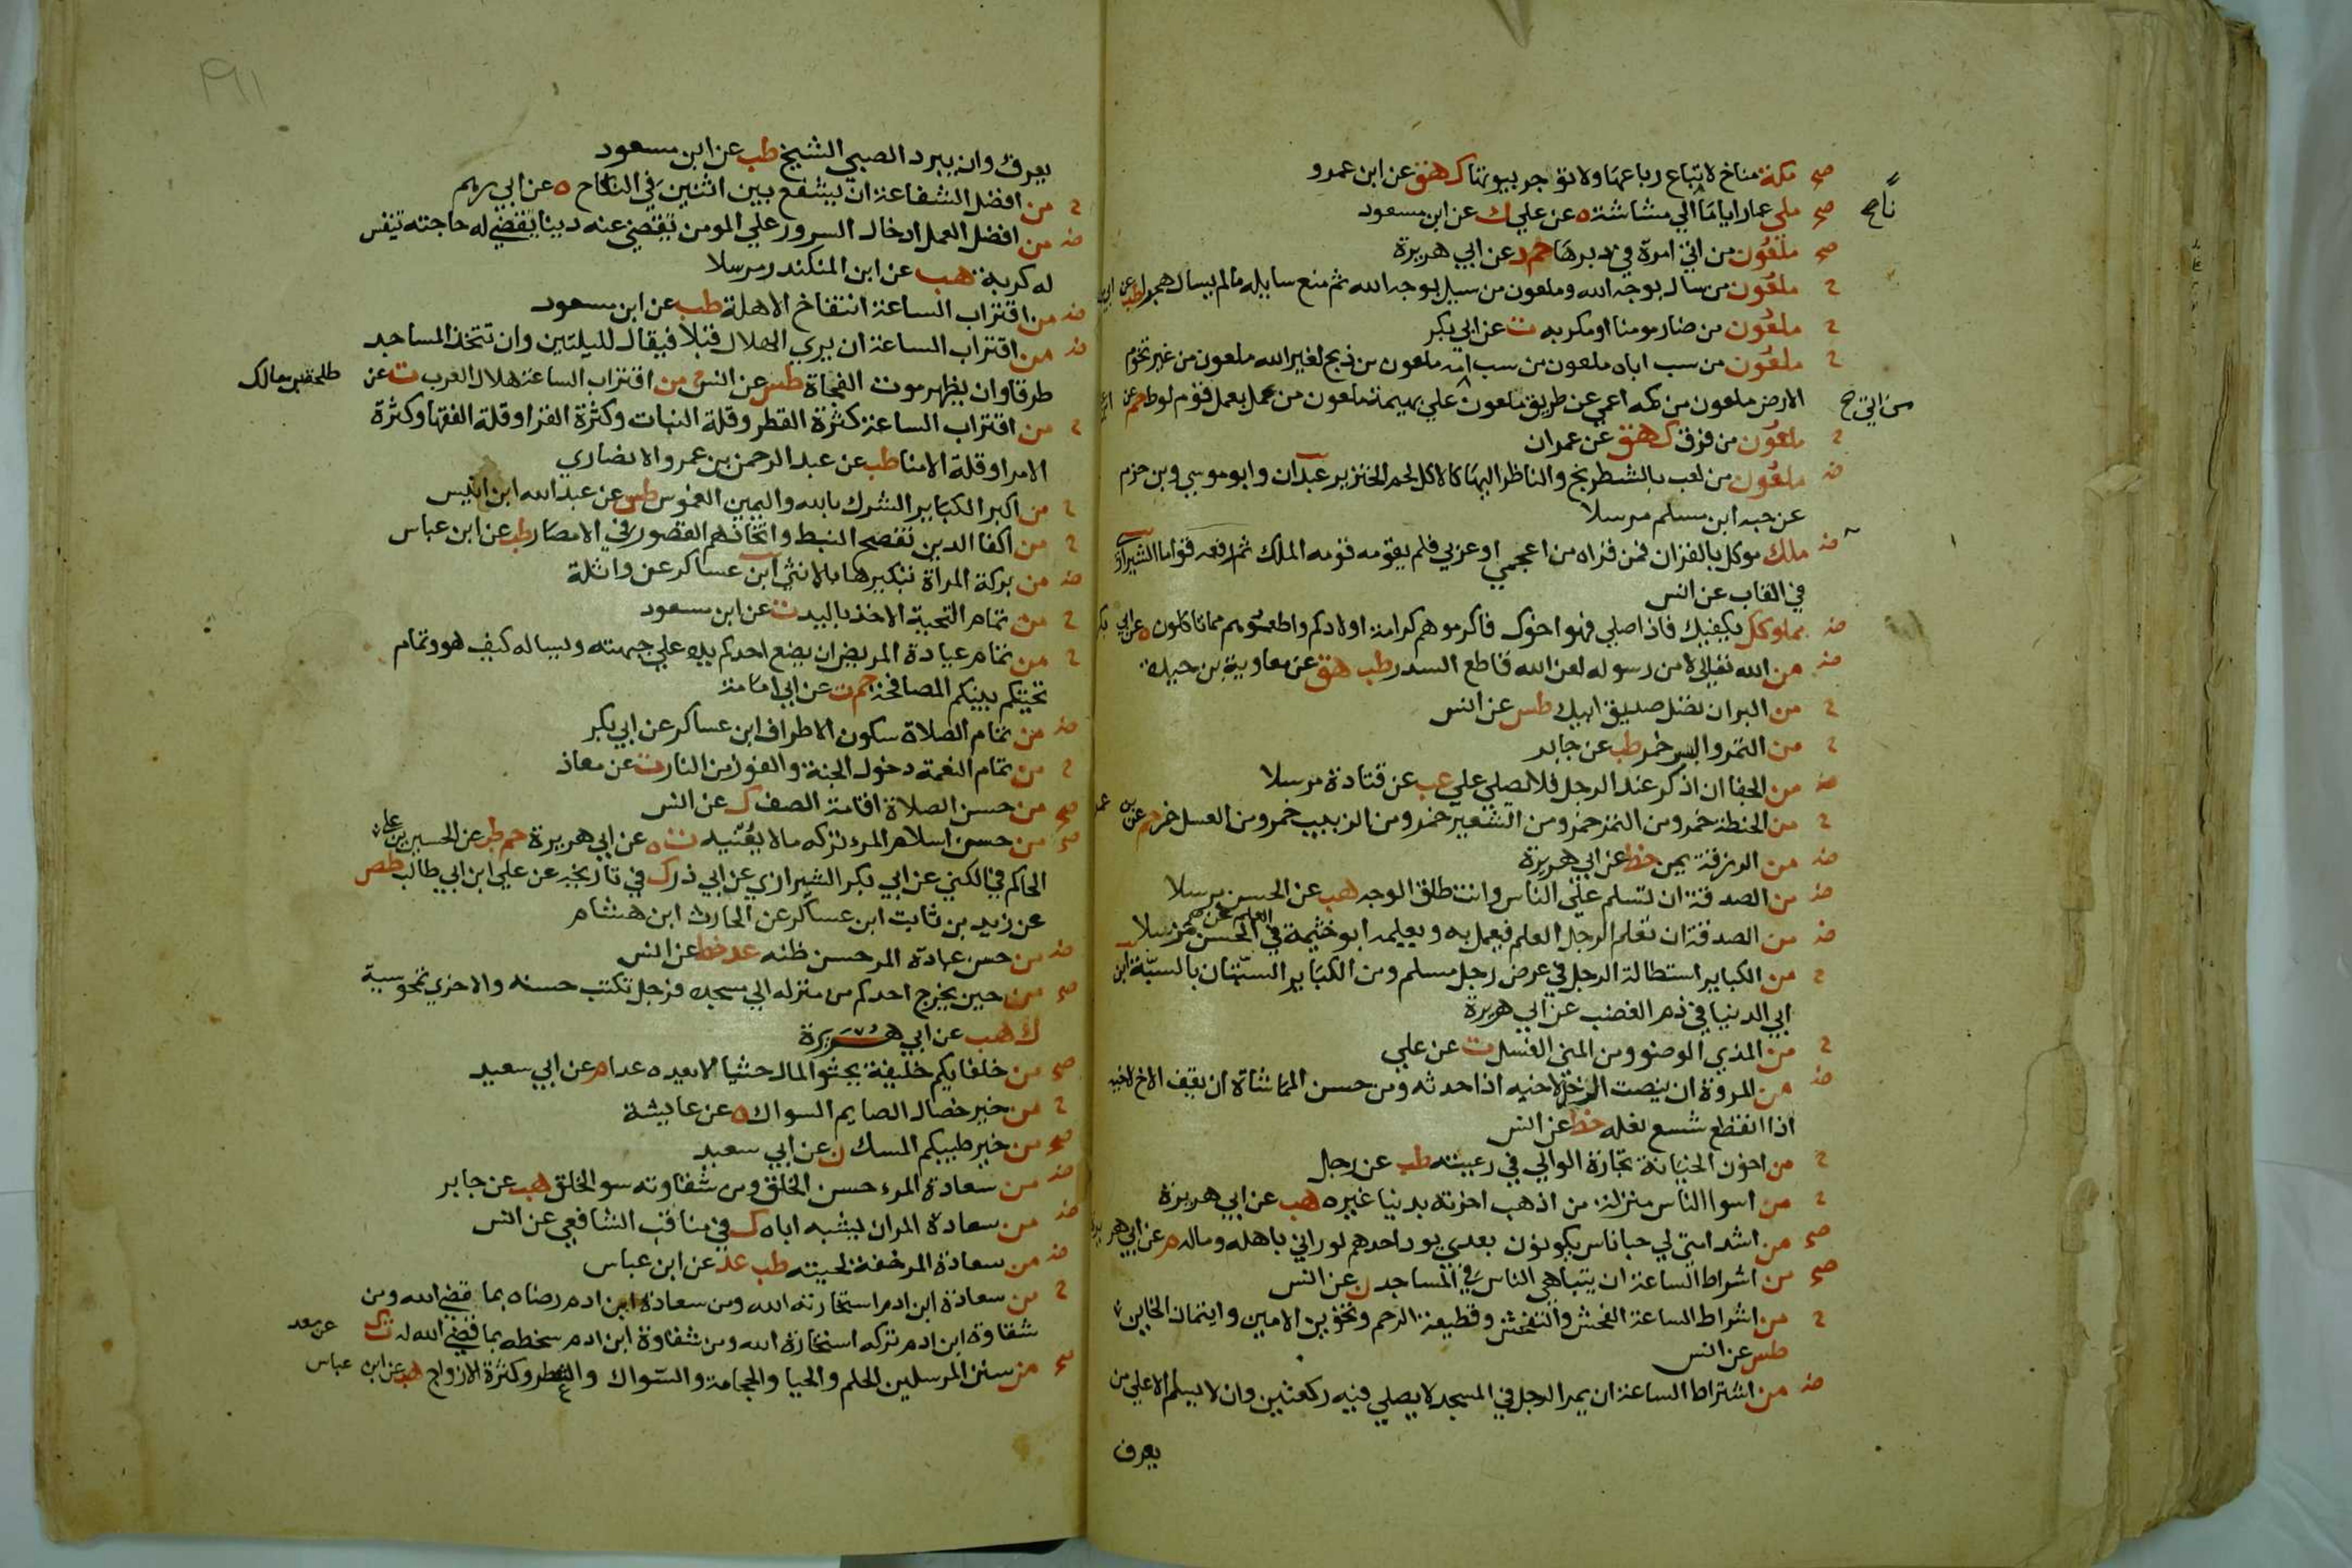 صح مكة مناخ لا تباع رباعها ولا تواجر بيوتها ك هق عن ابن عمرو
صح ملي عمار ايمانا الي مشاشته ه عن علي ك عن ابن مسعود
صح ملعون من اتي امرة في دبرها حم د عن ابي هريرة
ح ملعون من سال بوجه الله وملعون من سيل بوجه الله ثم منع سايله مالم يسال هجرا طب عن ابي
ح ملعون من ضار مومنا او مكر به ت عن ابي بكر
ح ملعون من سب اباه ملعون من سب امه ملعون من ذبح لغير الله ملعون من غير تخوم
الارض ملعون من كمه اعمي عن طريق ملعون علي بهيمة ملعون من عمل بعمل قوم لوط حم عن
ح ملعون من فرق ك هق عن عمران
ضـ ملعون من لعب بالشطرنج والناظر اليها كالاكل لحم الخنزير عبدان وابو موسي وبن حزم
عن حبه ابن مسلم مرسلا
ضـ ملك موكل بالقران فمن قراه من اعجمي او عربي فلم يقومه قومه الملك ثم رفعه قواما الشيرازي
في القاب عن انس
ضـ مملوكك يكفيك فاذا صلي فهو اخوك فاكرموهم كرامة اولادكم واطعموهم مما تاكلون ه عن ابي بكر
ضـ من الله تعالي لا من رسوله لعن الله قاطع السدر طب هق عن معاوية بن حيدة
ح من البر ان تصل صديق ابيك طس عن انس
ح من التمر والبسر خمر طب عن جابر
ضـ من الجفا ان اذكر عند الرجل فلا يصلي علي عب عن قتادة مرسلا
ح من الحنطة خمر ومن التمر خمر ومن الشعير خمر ومن الزبيب خمر ومن العسل خمر حم عن بن عمر
ضـ من الزرقة يمن خط عن ابي هريرة
ضـ من الصدقة ان تسلم علي الناس وانت طلق الوجه هب عن الحسن مرسلا
ضـ من الصدقة ان تعلم الرجل العلم فيعمل به ويعلمه ابو خثيمة في العلم عن الحسن مرسلا
ح من الكباير استطالة الرجل في عرض رجل مسلم ومن الكباير السبتان بالسبة ابن
ابي الدنيا في ذم الغضب عن ابي هريرة
ح من المذي الوضو ومن المني الغسل ت عن علي
ضـ من المروة ان ينصت الرجل لاخيه اذا حدثه ومن حسن المماشاة ان يقف الاخ لاخيه
اذا انقطع شسع نعله خط عن انس
ح من اخون الخيانة تجارة الوالي في رعيته طب عن رجل
ح من اسوا الناس منزلة من اذهب اخرته بدنيا غيره هب عن ابي هريرة
صح من اشد امتي لي حبا ناس يكونون بعدي يود احدهم لو راني باهله وماله م عن ابي هريرة
صح من اشراط الساعة ان يتباهي الناس في المساجد ن عن انس
ح من اشراط الساعة الفحش والتفحش وقطيعة الرحم وتخوين الامين وايتمان الخاين
طس عن انس
ضـ من اشتراط الساعة ان يمر الرجل في المسجد لا يصلي فيه ركعتين وان لا يسلم الا علي من
يعرف
يعرف وان يبرد الصبي الشيخ طب عن ابن مسعود
ح من افضل الشفاعة ان يشفع بين اثنين في النكاح ه عن ابي رهم
ضـ من افضل العمل ادخال السرور علي المومن تقضي عنه دينا تقضي له حاجته تنفس
له كربة هب عن ابن المنكدر مرسلا
ضـ من اقتراب الساعة انتفاخ الاهلة طب عن ابن مسعود
ضـ من اقتراب الساعة ان يري الهلال قبلا فيقال لليلتين وان تتخذ المساجد
طرقا وان يظهر موت الفجاة طس عن انس من اقتراب الساعة هلاك العرب ت عن طلحة بن مالك
ح من اقتراب الساعة كثرة القطر وقلة النبات وكثرة القرا وقلة الفقها وكثرة
الامرا وقلة الامنا طب عن عبد الرحمن بن عمرو الانصاري
ح من اكبر الكباير الشرك بالله واليمين الغموس طس عن عبد الله ابن انيس
ح من اكفا الدين تفصح النبط واتخاذهم القصور في الامصار طب عن ابن عباس
ضـ من بركة المراة تبكيرها بالانثي ابن عساكر عن واثلة
ح من تمام التحية الاخذ باليد ت عن ابن مسعود
ح من تمام عيادة المريض ان يضع احدكم يده علي جبهته ويساله كيف هو وتمام
تحيتكم بينكم المصافحة حم ت عن ابي امامة
ضـ من تمام الصلاة سكون الاطراف ابن عساكر عن ابي بكر
ح من تمام النعمة دخول الجنة والفوز من النار ت عن معاذ
صح من حسن الصلاة اقامة الصف ك عن انس
صح من حسن اسلام المرء تركه مالا يعنيه ت ه عن ابي هريرة حم طب عن الحسين بن علي
الحاكم في الكني عن ابي بكر الشيرازي عن ابي ذر ك في تاريخه عن علي ابن ابي طالب طص
عن زيد بن ثابت ابن عساكر عن الحارث ابن هشام
ضـ من حسن عبادة المر حسن ظنه عد خط عن انس
صح من حين يخرج احدكم من منزله الي مسجده فرجل تكتب حسنة والاخري تمحو سية
ك هب عن ابي هريرة
صح من خلفايكم خليفة يحثو المال حثيا لا يعده عدا م عن ابي سعيد
ح من خير خصال الصايم السواك ه عن عايشة
صح من خير طيبكم المسك ن عن ابي سعيد
ضـ من سعادة المرء حسن الخلق ومن شقاوته سو الخلق هب عن جابر
ضـ من سعادة المر ان يشبه اباه ك في مناقب الشافعي عن انس
ضـ من سعادة المر خفة لحيته طب عد عن ابن عباس
ح من سعادة ابن ادم استخارته الله ومن سعادة ابن ادم رضاه بما قضي الله ومن
شقاوة ابن ادم تركه استخارة الله ومن شقاوة ابن ادم سخطه بما قضي الله له ت ك عن سعد
صح من سنن المرسلين الحلم والحيا والحجامة والسواك والتعطر وكثرة الازواج هب عن ابن عباس